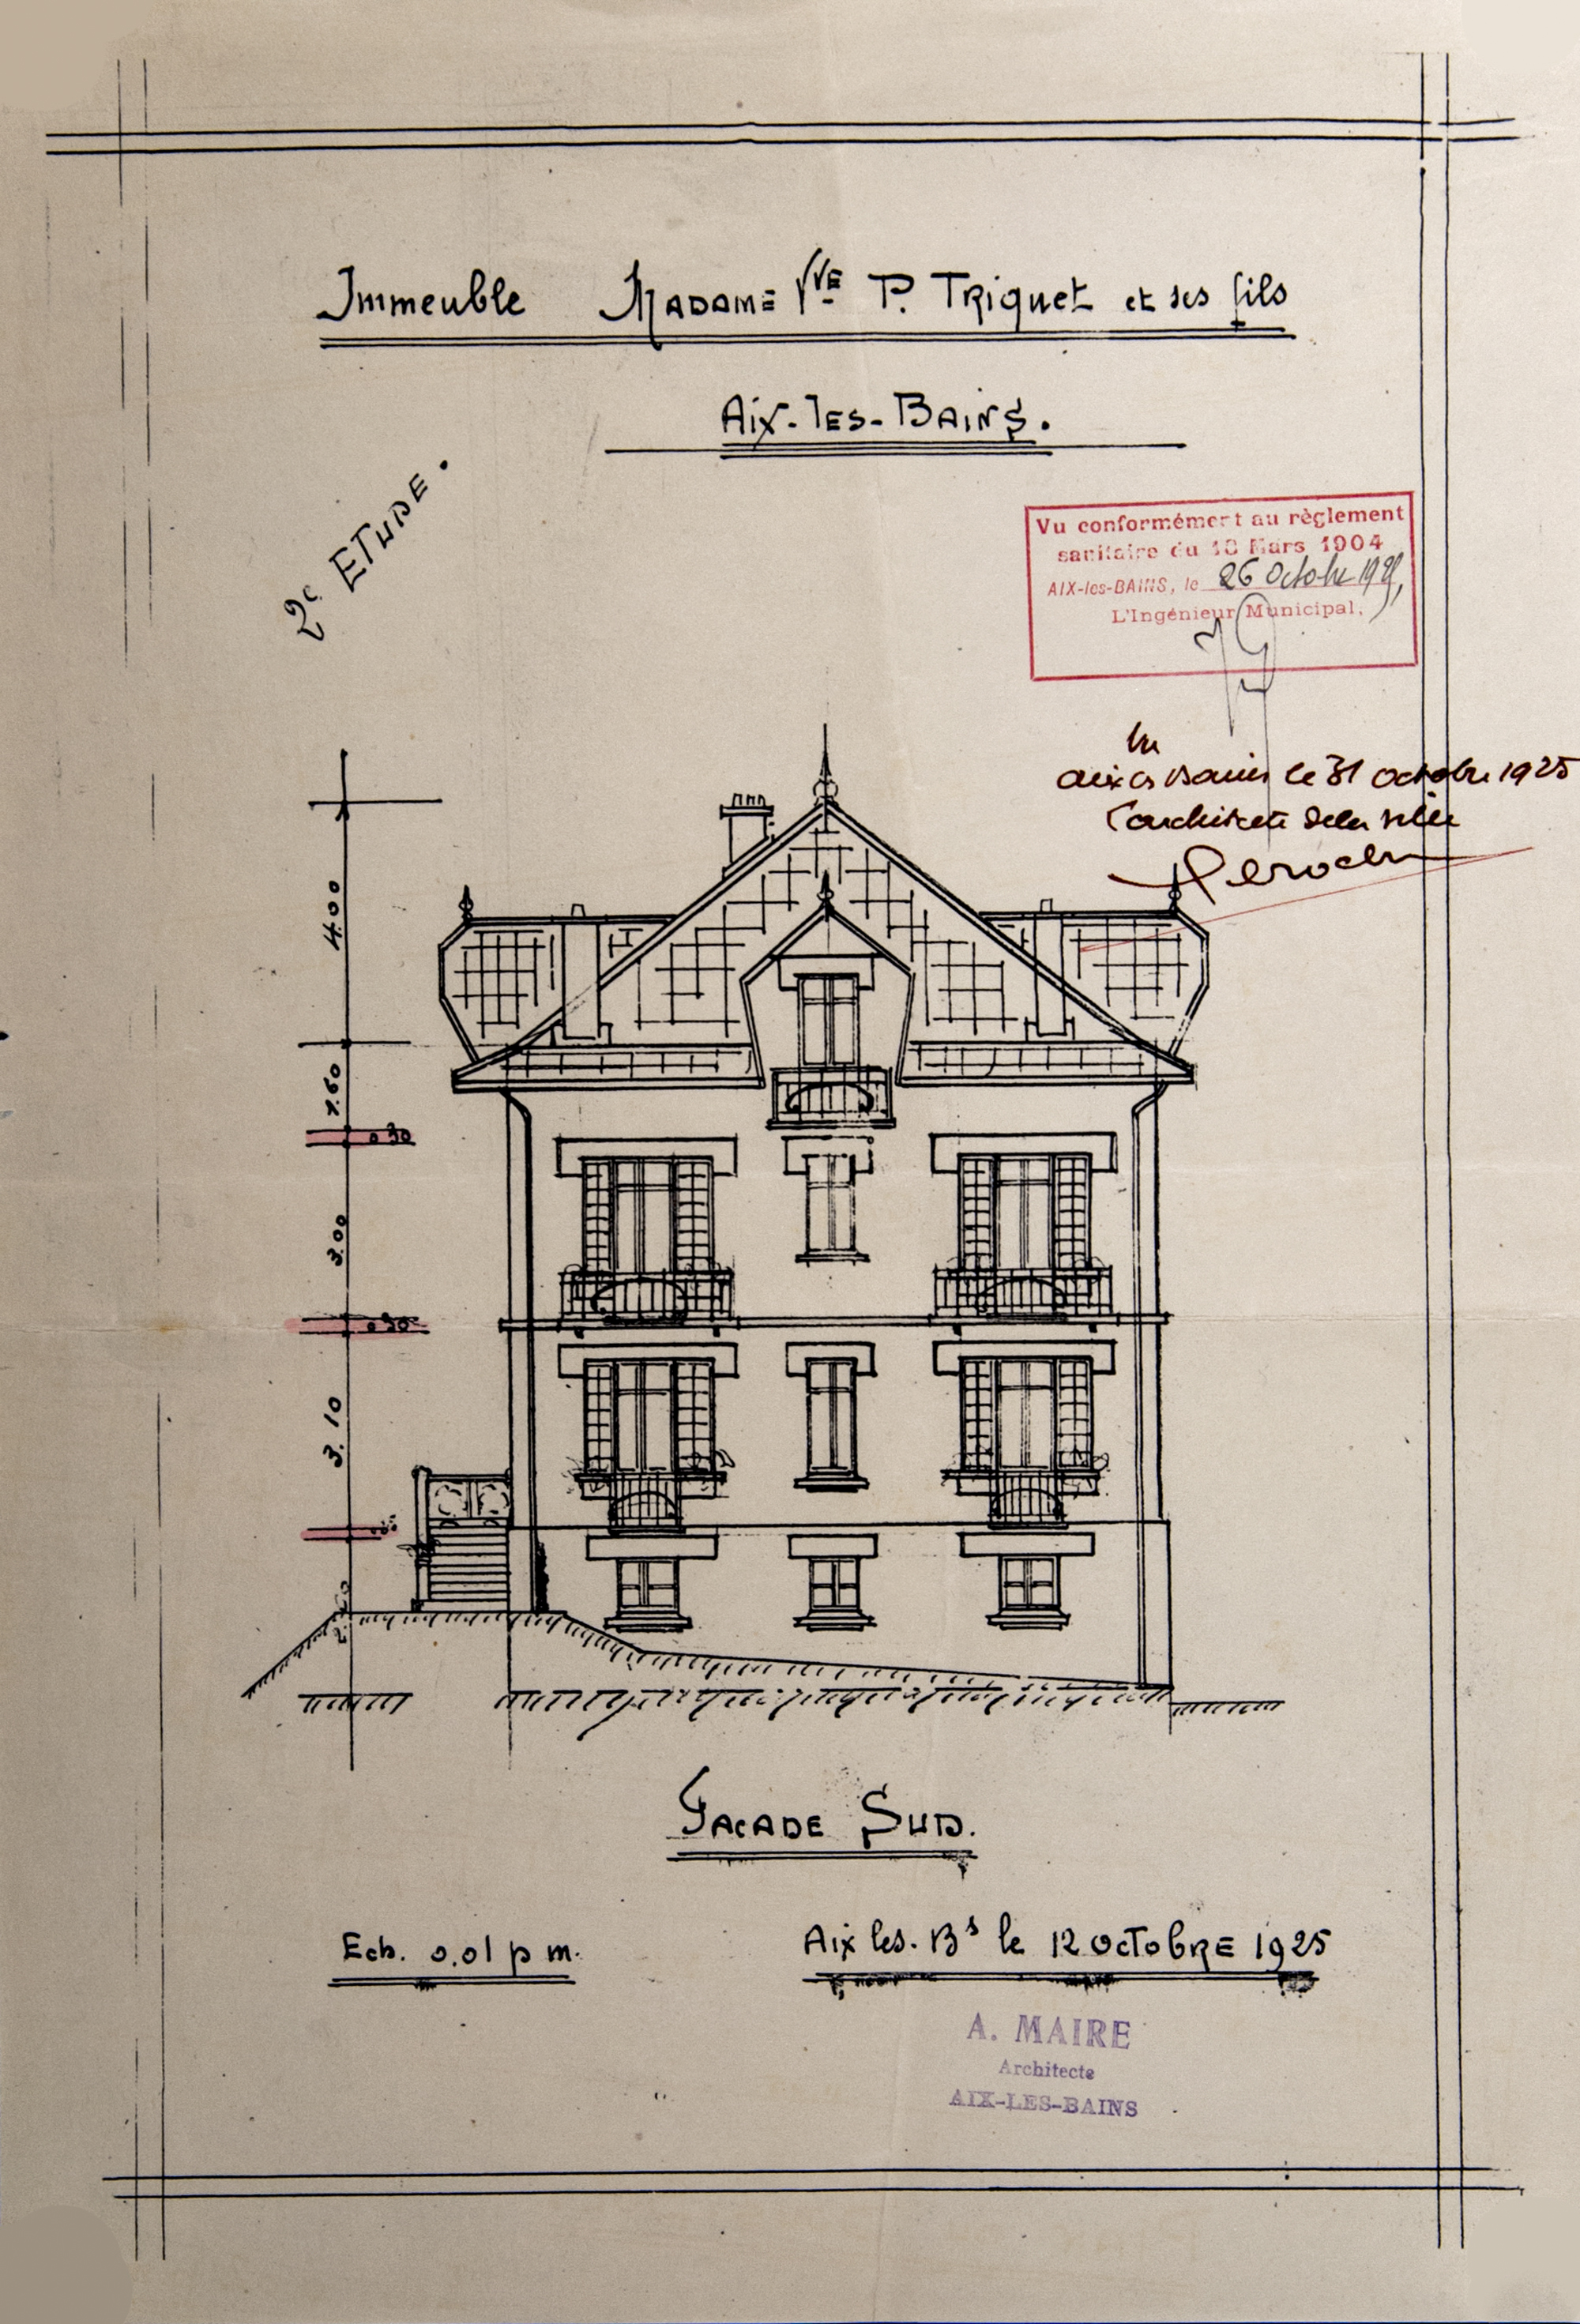 Immeuble Madame Vve P. Triquet et ses fils
Aix-les-Bains.
2e Etude.
Vu conformément au règlement
sanitaire du 18 Mars 1904
AIX-les-BAINS, le 26 Octobre 1925
L'Ingénieur Municipal,
Vu
Aix les Bains le 31 octobre 1925
L'architecte de la ville
4.00
1.60
0.30
3.00
0.30
3.10
Facade Sud.
Ech. 0.01 p m.
Aix les. Bs le 12 Octobre 1925
A. MAIRE
Architecte
AIX-LES-BAINS